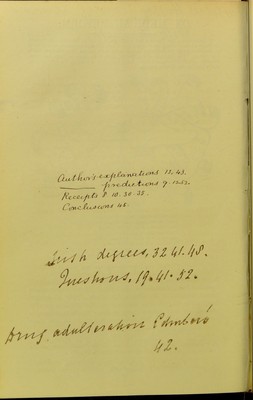 Author's explanations 12.43.
——— predictions 9.12.52.
Receipts 8.10.20.25.
Conclusions 48.
Irish degrees, 32 41.48.
Questions, 19.41.52.
Drug adulteration Edinboro'
42.